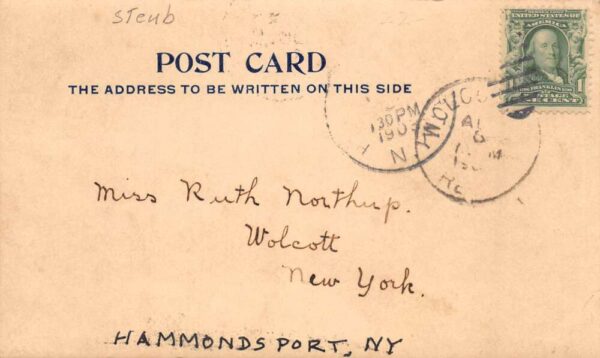 Steub
POST CARD
THE ADDRESS TO BE WRITTEN ON THIS SIDE
UNITED STATES OF
AMERICA
1 1
POSTAGE
ONE CENT
130 PM
190
N
Miss Ruth Northup.
Wolcott
New York.
HAMMONDSPORT, NY